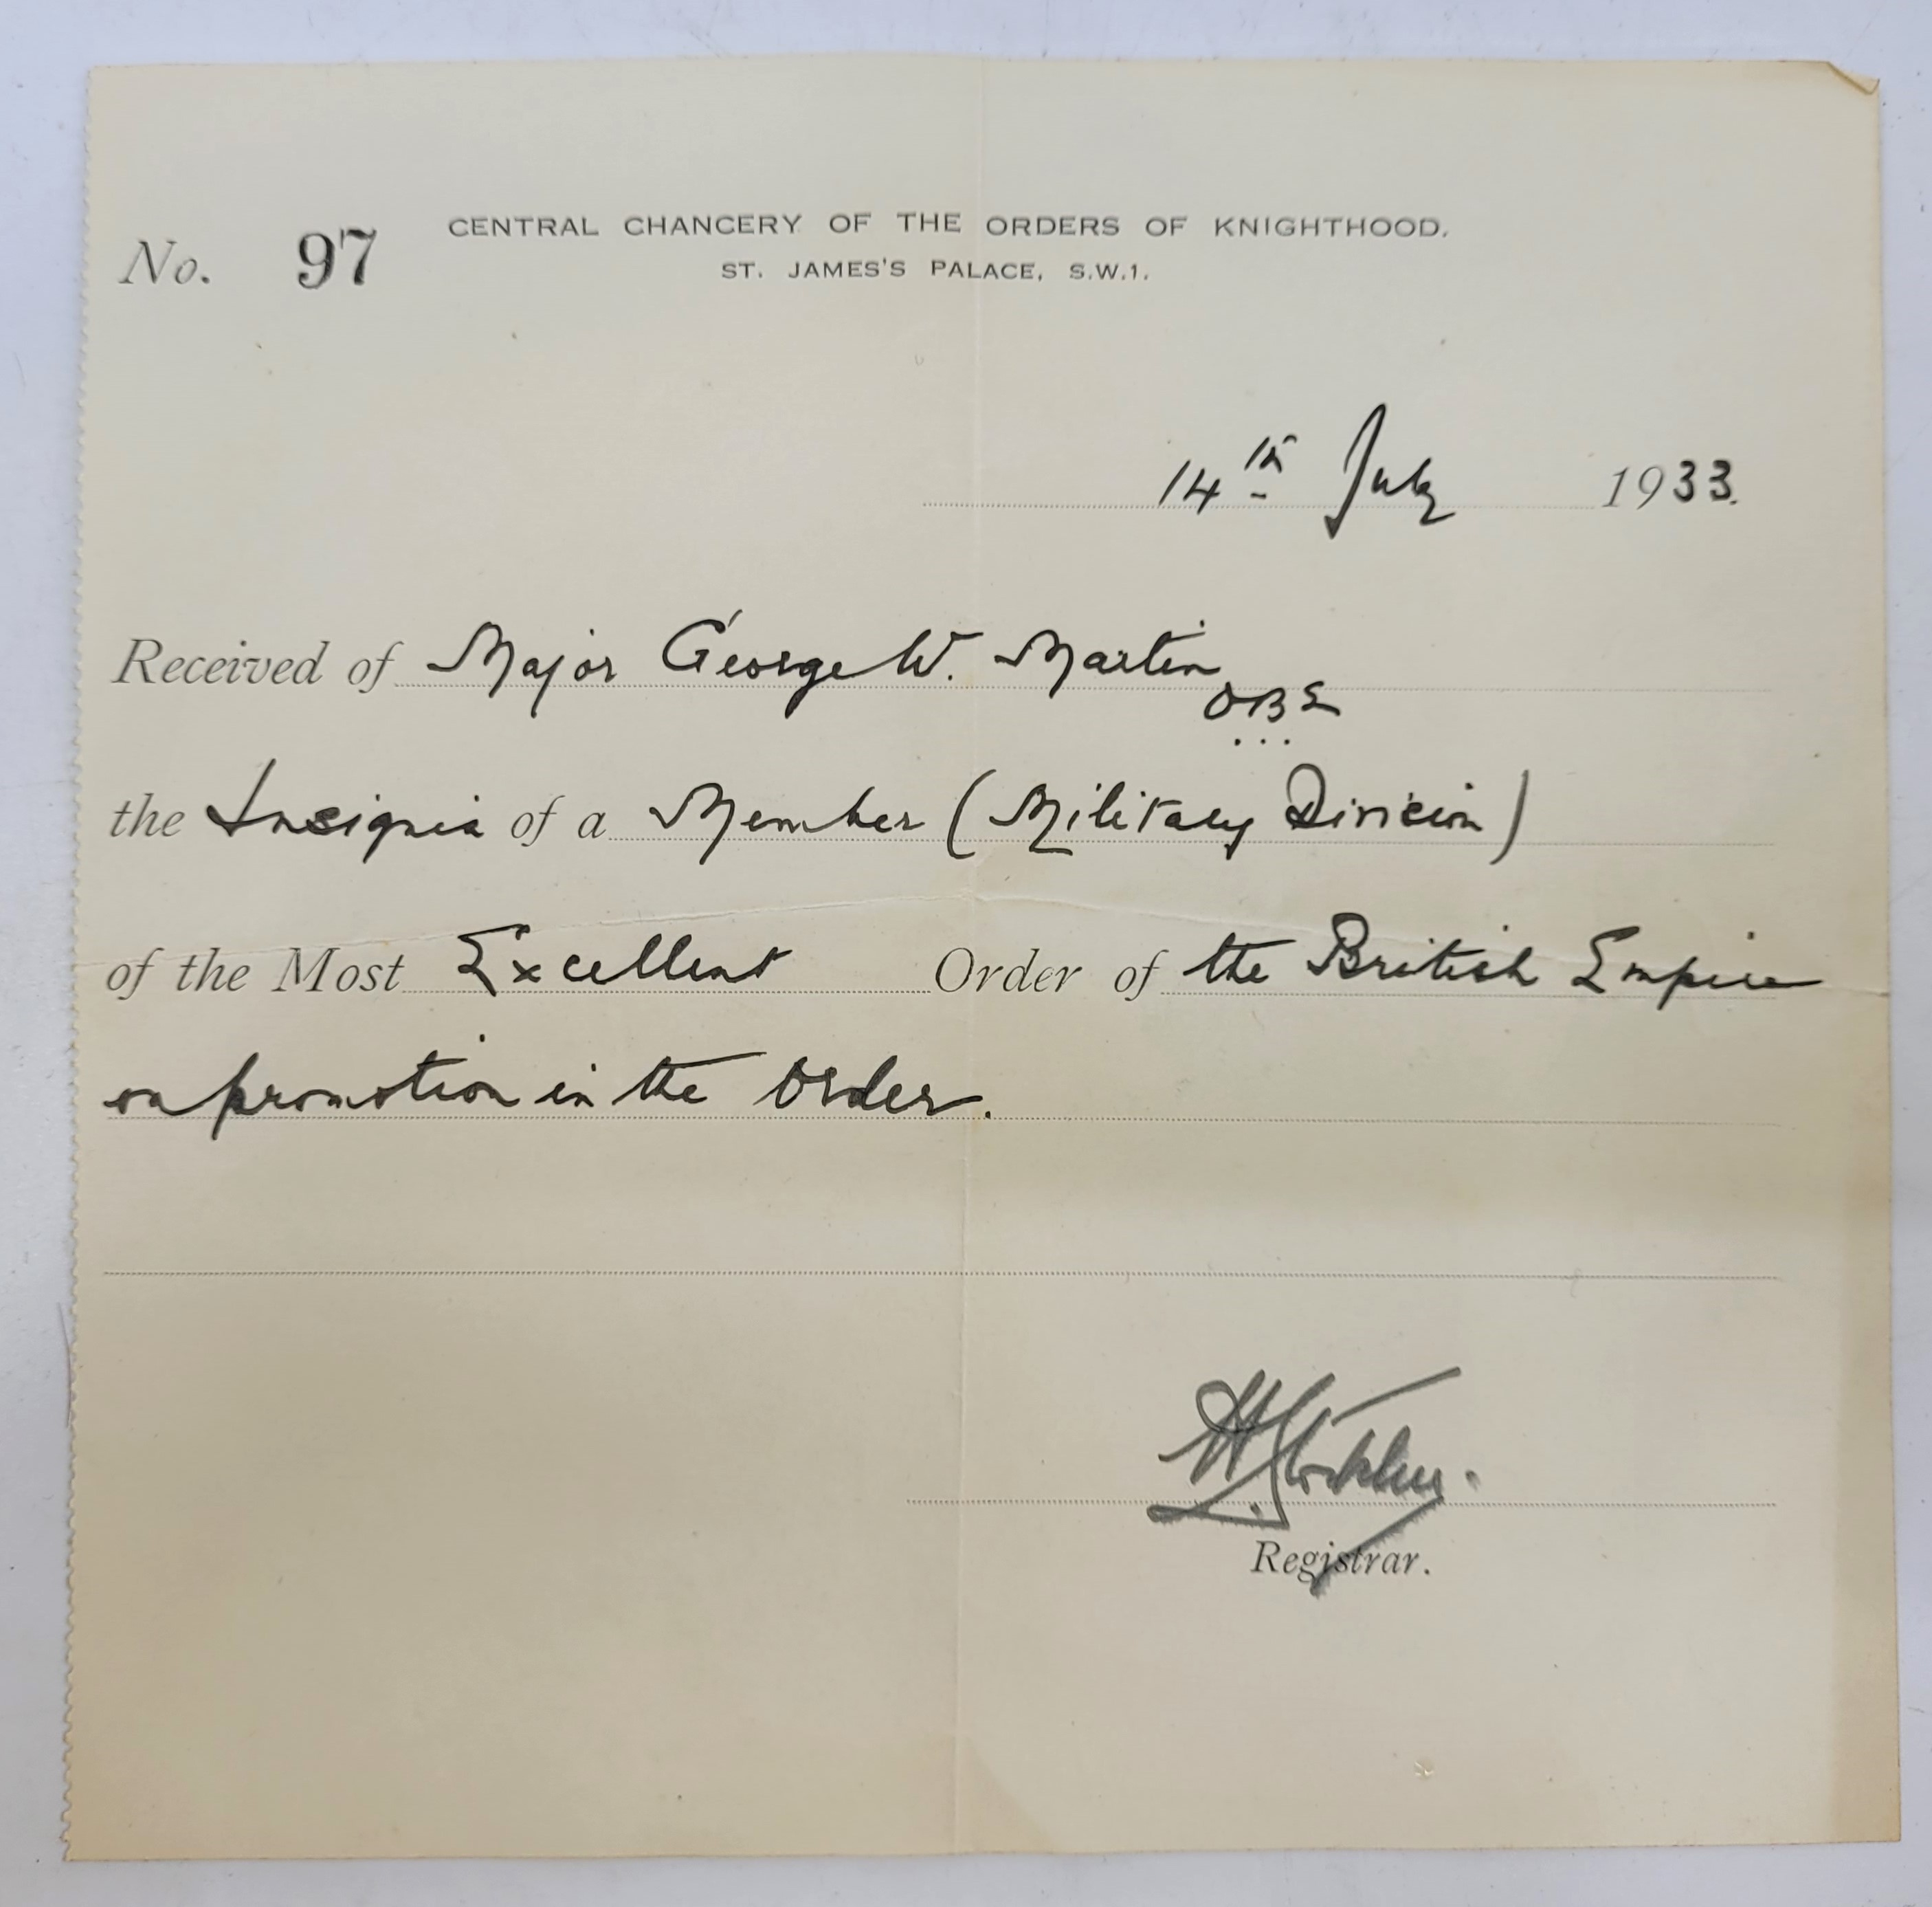 No. 97 CENTRAL CHANCERY OF THE ORDERS OF KNIGHTHOOD.
ST. JAMES'S PALACE, S.W.1.
14th July 1933.
Received of Major George W. Martin
OBE
the Insignia of a Member (Military Division)
of the Most Excellent Order of the British Empire
on promotion in the Order.
Registrar.